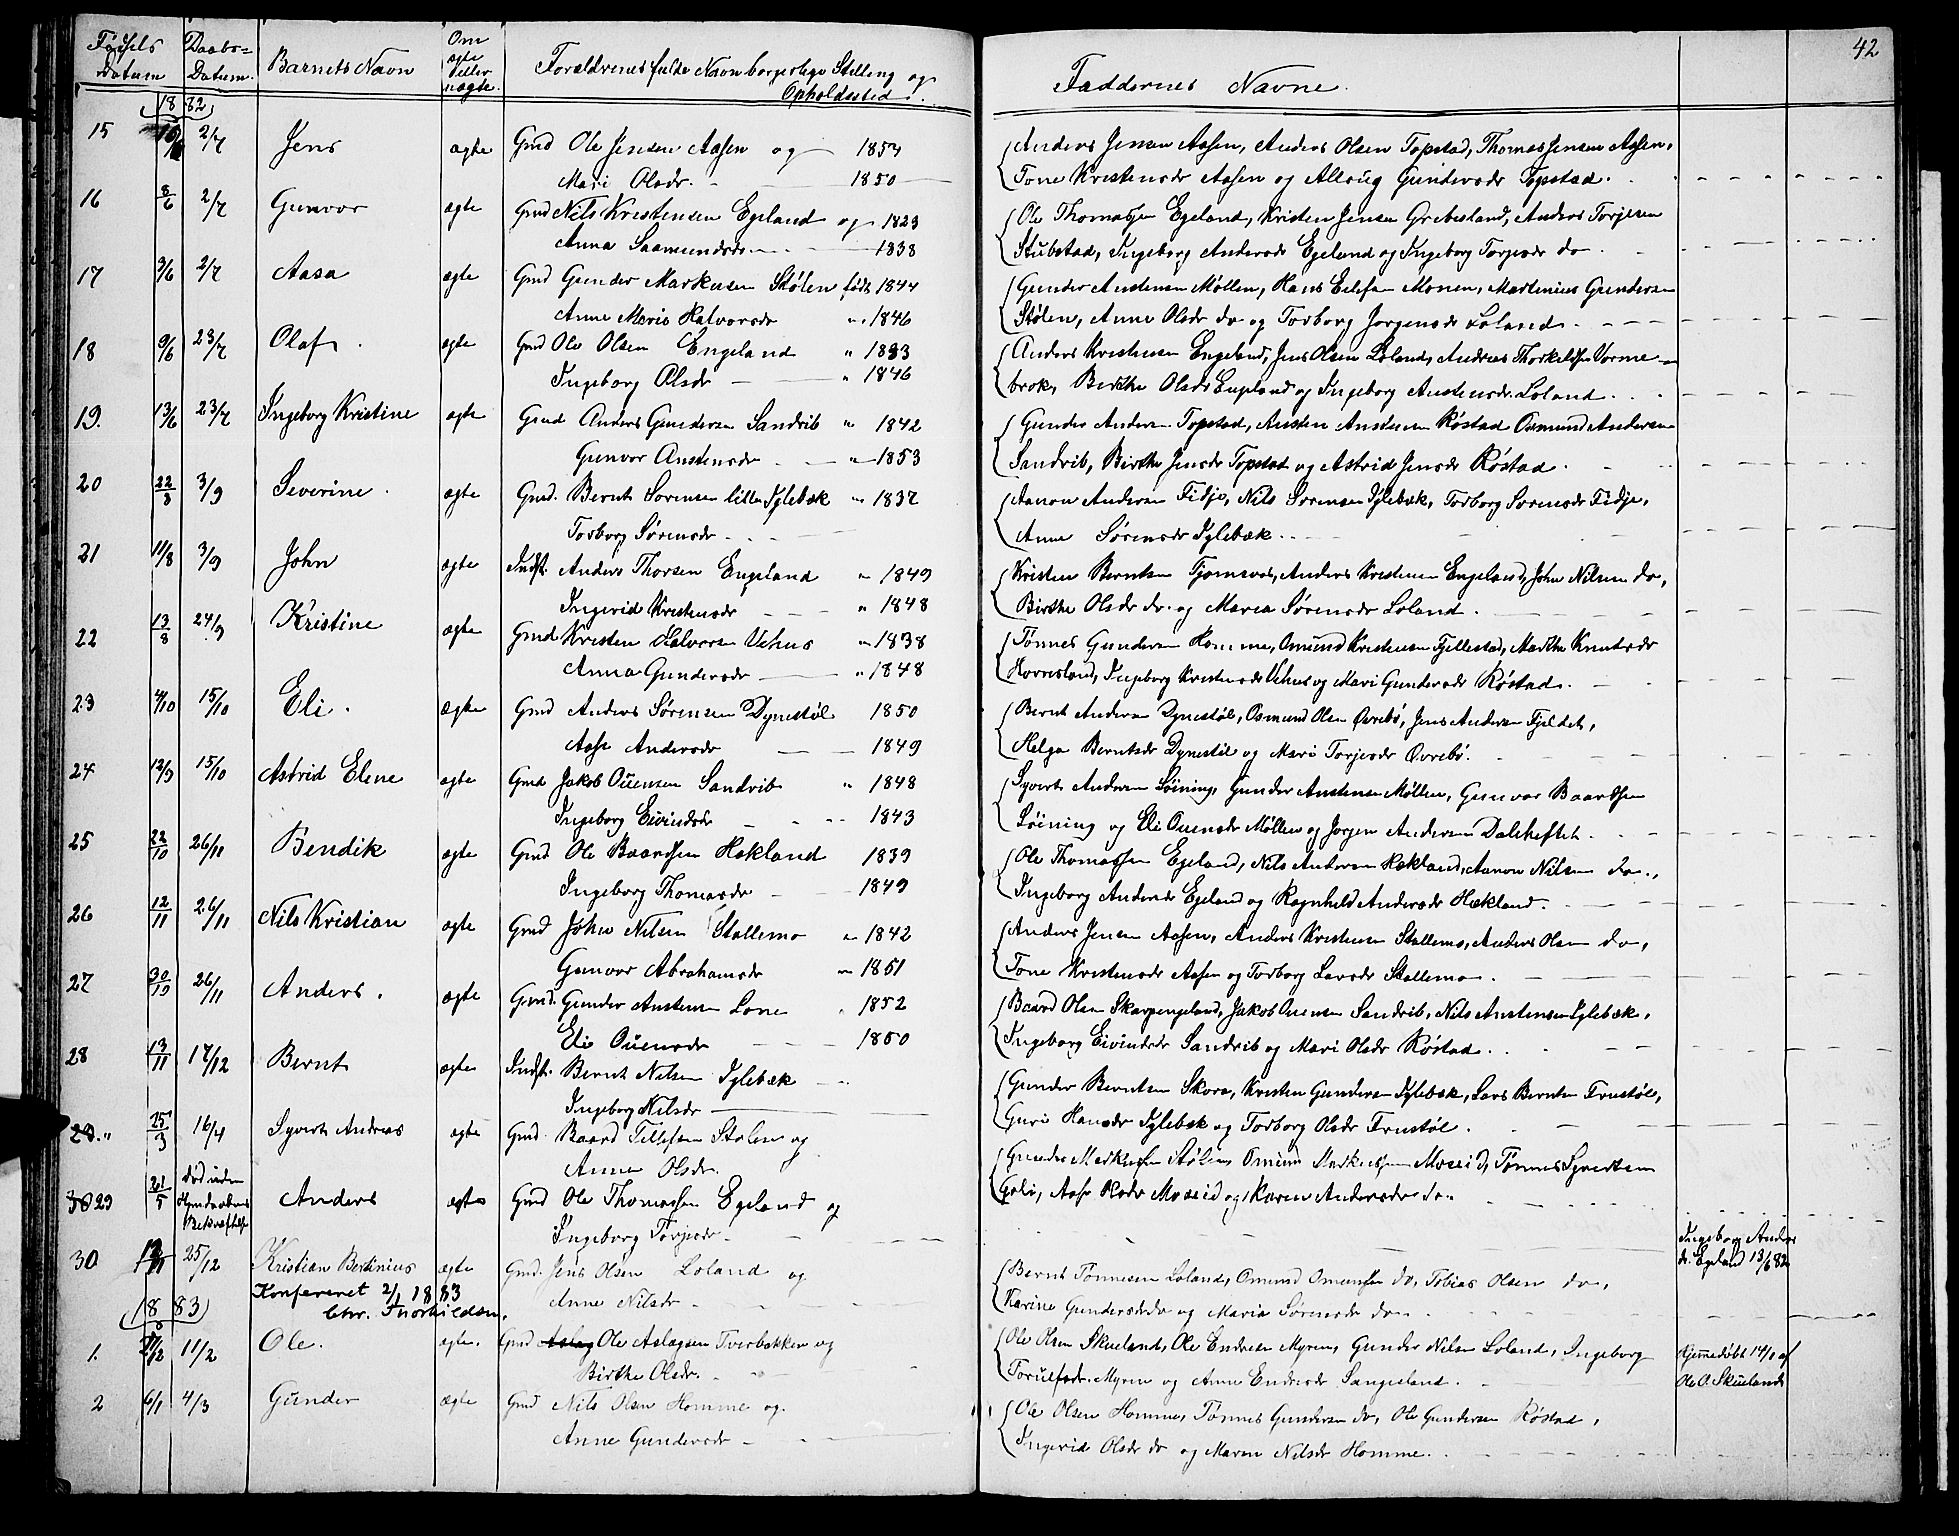 42
Fødsels Datum | Daabs-Datum. | Barnets Navn | Om ægte eller uægte. | Forældrenes fulde Navn borgerlige Stilling og Opholdssted. | Faddernes Navne.
18 82
15 2/7 Jens ægte Gmd Ole Jensen Aasen og 1854 Anders Jensen Aasen, Anders Olsen Topstad, Thomas Jensen Aasen,
Mari Olsdr. 1850 Tone Kristensdr Aasen og Allaug Gundersdr Topstad.
16 8/6 2/7 Gunvor ægte Gmd Nils Kristensen Egeland og 1823 Ole Thomassen Egeland, Kristen Jensen Grebesland, Anders Torjesen
Anna Saamundsdr 1838 Stubstad, Ingeborg Andersdr Egeland og Ingeborg Torjesdr do
17 3/6 2/7 Aasa ægte Gmd Gunder Markusen Stølen født 1844 Gunder Austensen Møllen, Hans Ellefsen Monen, Martinius Gundersen
Anne Marie Halvorsdr " 1846 Stølen, Anne Olsdr do og Torborg Jørgensdr Loland.
18 9/6 23/7 Olaf ægte Gmd Ole Olsen Engeland " 1833 Anders Kristensen Engeland, Jens Olsen Loland, Andreas Thorkeldsen Vorme-
Ingeborg Olsdr " 1846 brok, Birthe Olsdr Engeland og Ingeborg Austensdr. Loland.
19. 13/6 23/7 Ingeborg Kristine ægte Gmd Anders Gundersen Sandrib " 1842 Gunder Andersen Topstad, Austen Austensen Røstad Osmund Andersen
Gunvor Austensdr " 1853 Sandrib, Birthe Jensdr Topstad og Astrid Jensdr Røstad.
20 22/8 3/9 Severine. ægte Gmd. Bernt Sørensen lille Iglebæk " 1837 Aanon Andersen Fidje, Nils Sørensen Iglebæk, Torborg Sørensdr Fidje,
Torborg Sørensdr Anne Sørensdr Iglebæk.
21 11/8 3/9 John ægte Indst. Anders Thorsen Engeland " 1849 Kristen Berntsen Tjomsvos, Anders Kristensen Engeland, John Nilsen do,
Ingerid Kristensdr " 1848 Birthe Olsdr do. og Maria Sørensdr Loland.
22 13/8 24/9 Kristine ægte Gmd Kristen Halvorsen Vehus " 1838 Tønnes Gundersen Homme, Osmund Kristensen Fjellestad, Marthe Knutsdr
Anna Gundersdr " 1848 Hovvesland, Ingeborg Kristensdr Vehus og Mari Gundersdr Røstad.
23 4/10 15/10 Eli. ægte Gmd Anders Sørensen Dynestøl 1850 Bernt Andersen Dynestøl, Osmund Olsen Øvrebø, Jens Andersen Fjeldet,
Aase Andersdr 1849 Helga Berntsdr Dynestøl og Mari Torjesdr Øvrebø.
24 12/9 15/10 Astrid Elene ægte Gmd Jakob Ouensen Sandrib " 1848 Syvert Andersen Løining, Gunder Austensen Møllen, Gunvor Baardsen
Ingeborg Eivindsdr 1843 Løining og Eli Ouensdr Møllen og Jørgen Andersen Daleheftet.
25 22/10 26/11 Bendik ægte Gmd Ole Baardsen Hækland 1839 Ole Thomassen Egeland, Nils Andersen Hækland, Aanon Nilsen do.,
Ingeborg Thomasdr 1849 Ingeborg Andersdr Egeland og Ragnhild Andersdr Hækland.
26 12/11 26/11 Nils Kristian ægte Gmd John Nilsen Stallemo " 1842 Anders Jensen Aasen, Anders Kristensen Stallemo, Anders Olsen do,
Gunvor Abrahamsdr " 1851 Tone Kristensdr Aasen og Torborg Larsdr Stallemo.
27 30/10 26/11 Anders. ægte Gmd. Gunder Austensen Lone 1852 Baard Olsen Skarpengeland, Jakob Ouensen Sandrib, Nils Austensen Iglebæk,
Eli Ouensdr 1850 Ingeborg Eivindsdr Sandrib og Mari Olsdr Røstad.
28 13/11 17/12 Bernt ægte Indst. Bernt Nilsen Iglebæk Gunder Berntsen Skora, Kristen Gundersen Iglebæk, Lars Berntsen Frustøl,
Ingeborg Nilsdr Guri Hansdr Iglebæk og Torborg Olsdr Frustøl.
29. " 25/3 16/4 Syvert Andreas ægte Gmd. Baard Tellefsen Stølen og Gunder Markussen Stølen, Omund Markussen Moseid, Tønnes Syvertsen
Anne Olsdr. Goli, Aase Olsdr Moseid og Karen Andersdr do.
30 29 21/5 død uden Hjemdaabens Bekræftelse Anders ægte Gmd Ole Thomassen Egeland og
Ingeborg Torjesdr. Ingeborg Anders dr. Egeland 13/6 82
30 25/12 Kristian Bertinius ægte Gmd. Jens Olsen Loland og Bernt Tønnesen Loland, Omund Omundsen do, Tobias Olsen do,
Konfereret 2/1 1883 Anne Nilsdr Karine Gundersdr do og Maria Sørensdr do
Chr. Thorkildsen.
18 83
1. 27/12 11/2 Ole. ægte. Gmd Aslag Ole Aslagsen Tverbakken og Ole Olsen Skueland, Ole Endresen Myren, Gunder Nilsen Loland, Ingeborg Hjemmedøbt 14/1 af
Birthe Olsdr. Torjulfsdr. Myren og Anne Endresdr Sangesland. Ole O. Skueland
2 6/1 4/3 Gunder ægte Gmd Nils Olsen Homme og Ole Olsen Homme, Tønnes Gundersen do, Ole Gundersen Røstad,
Anne Gundersdr Ingerid Olsdr do og Maren Nilsdr Homme.